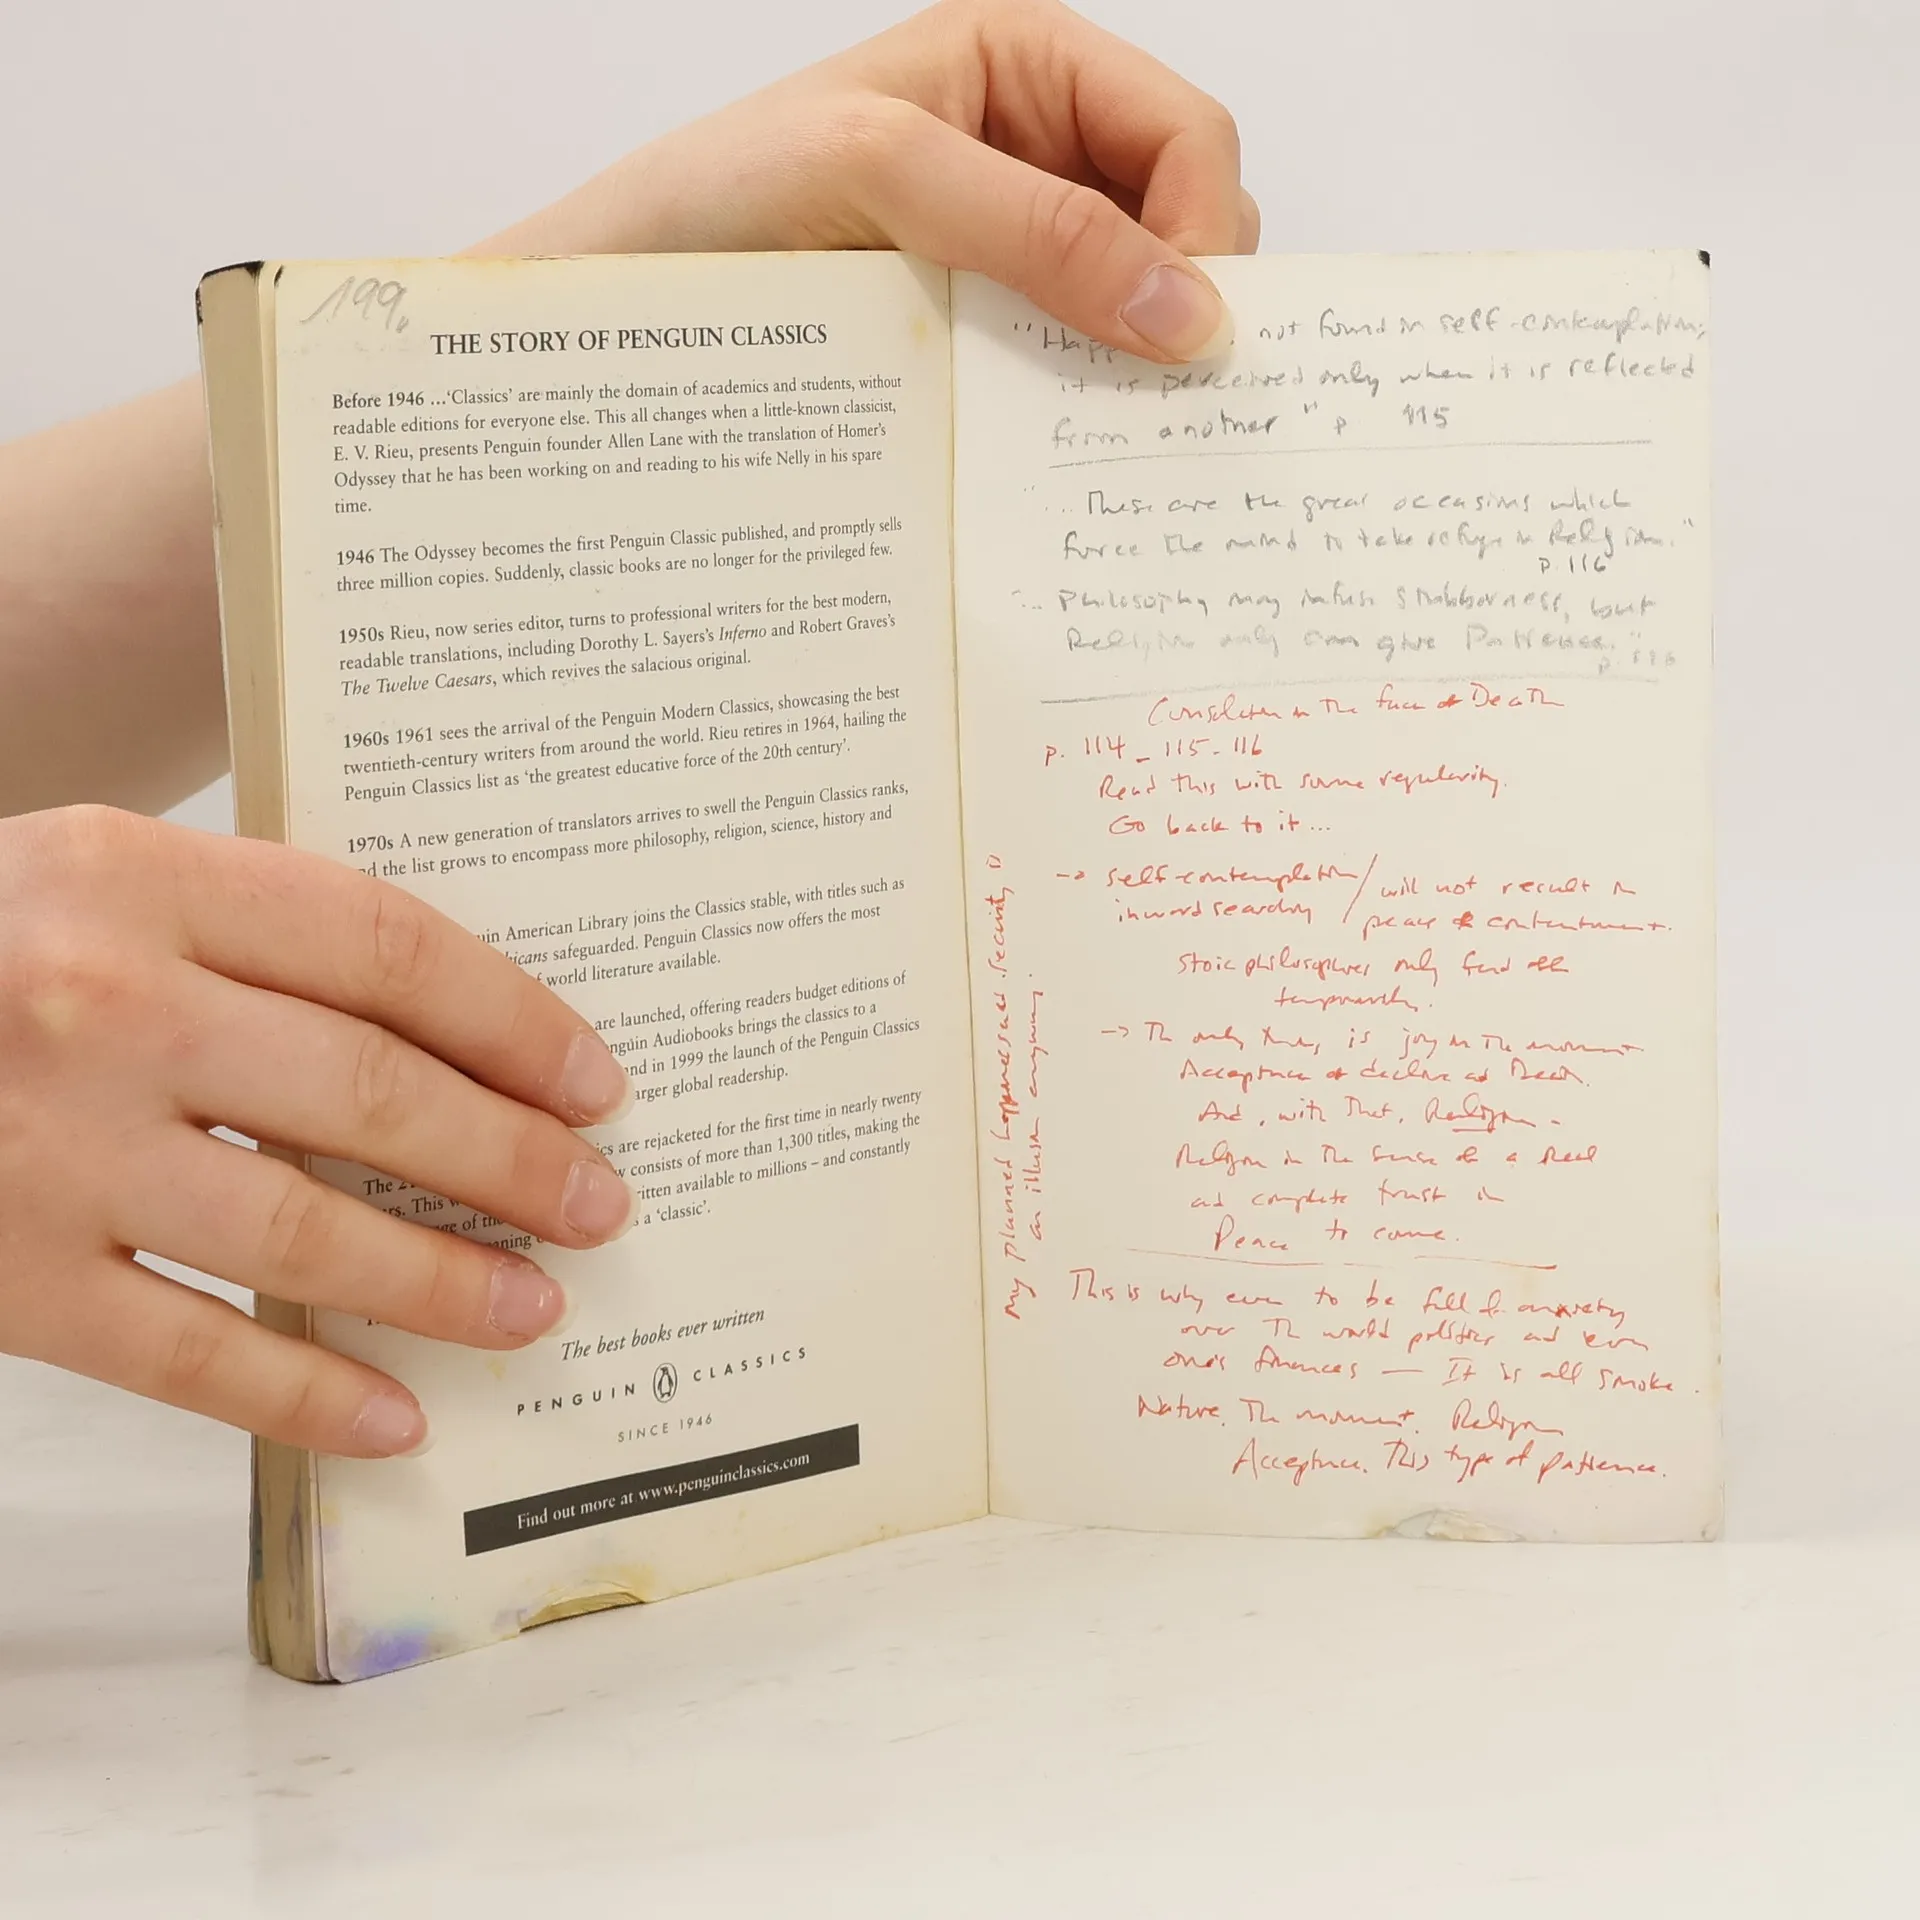 199,
THE STORY OF PENGUIN CLASSICS
Before 1946 ...‘Classics’ are mainly the domain of academics and students, without
readable editions for everyone else. This all changes when a little-known classicist,
E. V. Rieu, presents Penguin founder Allen Lane with the translation of Homer’s
Odyssey that he has been working on and reading to his wife Nelly in his spare
time.
1946 The Odyssey becomes the first Penguin Classic published, and promptly sells
three million copies. Suddenly, classic books are no longer for the privileged few.
1950s Rieu, now series editor, turns to professional writers for the best modern,
readable translations, including Dorothy L. Sayers’s Inferno and Robert Graves’s
The Twelve Caesars, which revives the salacious original.
1960s 1961 sees the arrival of the Penguin Modern Classics, showcasing the best
twentieth-century writers from around the world. Rieu retires in 1964, hailing the
Penguin Classics list as ‘the greatest educative force of the 20th century’.
1970s A new generation of translators arrives to swell the Penguin Classics ranks,
the list grows to encompass more philosophy, religion, science, history and
American Library joins the Classics stable, with titles such as
safeguarded. Penguin Classics now offers the most
world literature available.
are launched, offering readers budget editions of
Audiobooks brings the classics to a
in 1999 the launch of the Penguin Classics
global readership.
The
are rejacketed for the first time in nearly twenty
This
consists of more than 1,300 titles, making the
of
available to millions – and constantly
a ‘classic’.
The best books ever written
PENGUIN CLASSICS
SINCE 1946
Find out more at www.penguinclassics.com
not found in self-contemplation;
it is perceived only when it is reflected
from another" p 115
"... These are the great occasions which
force the mind to take refuge in Religion."
p. 116
"... Philosophy may infuse stubborness, but
Religion only can give Patience."
p.
Consolation in The face of Death
p. 114 - 115 - 116
Read this with some regularity.
Go back to it ...
-> self-contemplation / will not result in
inward searching / peace & contentment.
Stoic philosophers only find
temporarily.
-> The only is joy in The moment
Acceptance of decline and Death.
And, with That, Religion -
Religion in The sense of a Real
and complete trust in
Peace to come.
This is why even to be full of anxiety
over The world politics and even
one's finances — It is all smoke.
Nature. The moment. Religion
Acceptance. This type of patience.
My planned happiness and security is
an illusion anyway.